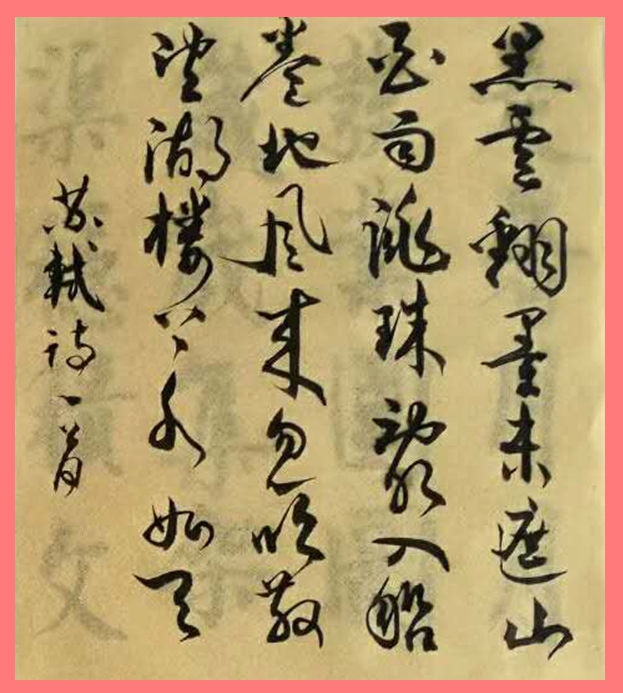 黑雲翻墨未遮山
白雨跳珠亂入船
卷地風来忽吹散
望湖楼下水如天
苏軾詩一首